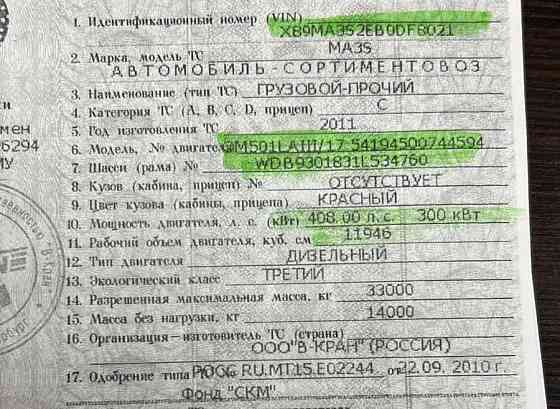 1. Идентификационный номер (VIN)
X89MA3S2EB0DF8021
2. Марка, модель ТС MA3S
АВТОМОБИЛЬ - СОРТИМЕНТОВОЗ
3. Наименование (тип ТС) ГРУЗОВОЙ-ПРОЧИЙ
4. Категория ТС (А, В, С, D, прицеп) С
5. Год изготовления ТС 2011
6. Модель, № двигателя OM501LAIII/17 54194500744594
7. Шасси (рама) № WDB9301831L534760
8. Кузов (кабина, прицеп) № ОТСУТСТВУЕТ
9. Цвет кузова (кабины, прицепа) КРАСНЫЙ
10. Мощность двигателя, л. с. (кВт) 408.00 л. с. 300 кВт
11. Рабочий объем двигателя, куб. см 11946
12. Тип двигателя ДИЗЕЛЬНЫЙ
13. Экологический класс ТРЕТИЙ
14. Разрешенная максимальная масса, кг 33000
15. Масса без нагрузки, кг 14000
16. Организация—изготовитель ТС (страна)
ООО"В-КРАН" (РОССИЯ)
17. Одобрение типа РОСС RU.MT15.E02244 от 22.09. 2010 г.
Фонд "СКМ"
ки
мен
6294
МУ